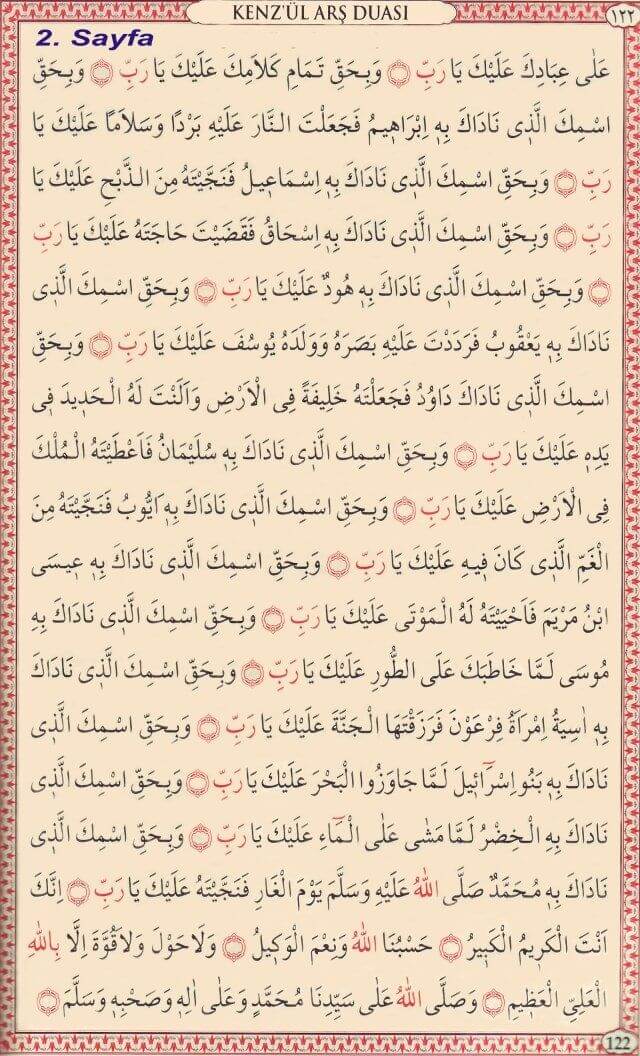 KENZ'ÜL ARŞ DUASI
١٢٢
2. Sayfa
عَلٰى عِبَادِكَ عَلَيْكَ يَا رَبِّ ۞ وَبِحَقِّ تَمَامِ كَلَامِكَ عَلَيْكَ يَا رَبِّ ۞ وَبِحَقِّ
اسْمِكَ الَّذٖى نَادَاكَ بِهٖ اِبْرَاهٖيمُ فَجَعَلْتَ النَّارَ عَلَيْهِ بَرْدًا وَسَلَامًا عَلَيْكَ يَا
رَبِّ ۞ وَبِحَقِّ اسْمِكَ الَّذٖى نَادَاكَ بِهٖ اِسْمَاعٖيلُ فَنَجَّيْتَهُ مِنَ الذَّبْحِ عَلَيْكَ يَا
رَبِّ ۞ وَبِحَقِّ اسْمِكَ الَّذٖى نَادَاكَ بِهٖ اِسْحَاقُ فَقَضَيْتَ حَاجَتَهُ عَلَيْكَ يَا رَبِّ
۞ وَبِحَقِّ اسْمِكَ الَّذٖى نَادَاكَ بِهٖ هُودٌ عَلَيْكَ يَا رَبِّ ۞ وَبِحَقِّ اسْمِكَ الَّذٖى
نَادَاكَ بِهٖ يَعْقُوبُ فَرَدَدْتَ عَلَيْهِ بَصَرَهُ وَوَلَدَهُ يُوسُفَ عَلَيْكَ يَا رَبِّ ۞ وَبِحَقِّ
اسْمِكَ الَّذٖى نَادَاكَ دَاوُدُ فَجَعَلْتَهُ خَلِيفَةً فِى الْاَرْضِ وَاَلَنْتَ لَهُ الْحَدٖيدَ فٖى
يَدِهٖ عَلَيْكَ يَا رَبِّ ۞ وَبِحَقِّ اسْمِكَ الَّذٖى نَادَاكَ بِهٖ سُلَيْمَانُ فَاَعْطَيْتَهُ الْمُلْكَ
فِى الْاَرْضِ عَلَيْكَ يَا رَبِّ ۞ وَبِحَقِّ اسْمِكَ الَّذٖى نَادَاكَ بِهٖ اَيُّوبُ فَنَجَّيْتَهُ مِنَ
الْغَمِّ الَّذٖى كَانَ فٖيهِ عَلَيْكَ يَا رَبِّ ۞ وَبِحَقِّ اسْمِكَ الَّذٖى نَادَاكَ بِهٖ عٖيسَى
ابْنُ مَرْيَمَ فَاَحْيَيْتَهُ لَهُ الْمَوْتَى عَلَيْكَ يَا رَبِّ ۞ وَبِحَقِّ اسْمِكَ الَّذٖى نَادَاكَ بِهٖ
مُوسَى لَمَّا خَاطَبَكَ عَلَى الطُّورِ عَلَيْكَ يَا رَبِّ ۞ وَبِحَقِّ اسْمِكَ الَّذٖى نَادَاكَ
بِهٖ اٰسِيَةُ اِمْرَاَةُ فِرْعَوْنَ فَرَزَقْتَهَا الْجَنَّةَ عَلَيْكَ يَا رَبِّ ۞ وَبِحَقِّ اسْمِكَ الَّذٖى
نَادَاكَ بِهٖ بَنُو اِسْرَٓائٖيلَ لَمَّا جَاوَزُوا الْبَحْرَ عَلَيْكَ يَا رَبِّ ۞ وَبِحَقِّ اسْمِكَ الَّذٖى
نَادَاكَ بِهِ الْخِضْرُ لَمَّا مَشٰى عَلَى الْمَٓاءِ عَلَيْكَ يَا رَبِّ ۞ وَبِحَقِّ اسْمِكَ الَّذٖى
نَادَاكَ بِهٖ مُحَمَّدٌ صَلَّى اللّٰهُ عَلَيْهِ وَسَلَّمَ يَوْمَ الْغَارِ فَنَجَّيْتَهُ عَلَيْكَ يَا رَبِّ ۞ اِنَّكَ
اَنْتَ الْكَرٖيمُ الْكَبٖيرُ ۞ حَسْبُنَا اللّٰهُ وَنِعْمَ الْوَكٖيلُ ۞ وَلَا حَوْلَ وَلَا قُوَّةَ اِلَّا بِاللّٰهِ
الْعَلِىِّ الْعَظٖيمِ ۞ وَصَلَّى اللّٰهُ عَلٰى سَيِّدِنَا مُحَمَّدٍ وَعَلٰى اٰلِهٖ وَصَحْبِهٖ وَسَلَّمَ ۞
122